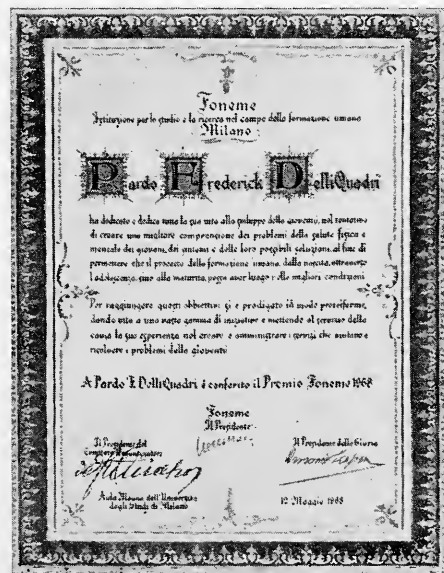 Foneme
Istituzione per lo studio e la ricerca nel campo della formazione umana
Milano
Pardo Frederick DelliQuadri
ha dedicato e dedica tutta la sua vita allo sviluppo della gioventù, nel tentativo
di creare una migliore comprensione dei problemi della salute fisica e
mentale dei giovani, dei sistemi e delle loro possibili soluzioni, al fine di
permettere che il processo della formazione umana, dalla nascita, attraverso
l'adolescenza, sino alla maturità, possa aver luogo nelle migliori condizioni
Per raggiungere questi obbiettivi si è prodigato in modo proteiforme,
dando vita a una vasta gamma di iniziative e mettendo al servizio della
causa la sua esperienza nel creare e amministrare i servizi che aiutano a
risolvere i problemi della gioventù
A Pardo F. DelliQuadri è conferito il Premio Foneme 1968
Foneme
Il Presidente
Il Presidente del
Comitato
Il Presidente della Giuria
Aula Magna dell'Università
degli Studi di Milano
12 Maggio 1968